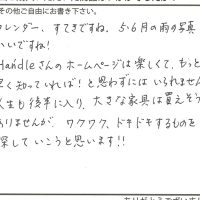 その他ご自由にお書き下さい。
カレンダー、すてきですね。5・6月の雨の写真
いいですね!
Handleさんのホームページは楽しくて、もっと
早く知っていれば!と思わずにはいられません
人生も後半に入り、大きな家具は買えそう
ありませんが、ワクワク、ドキドキするものを
探していこうと思います!!
ありがとうございま